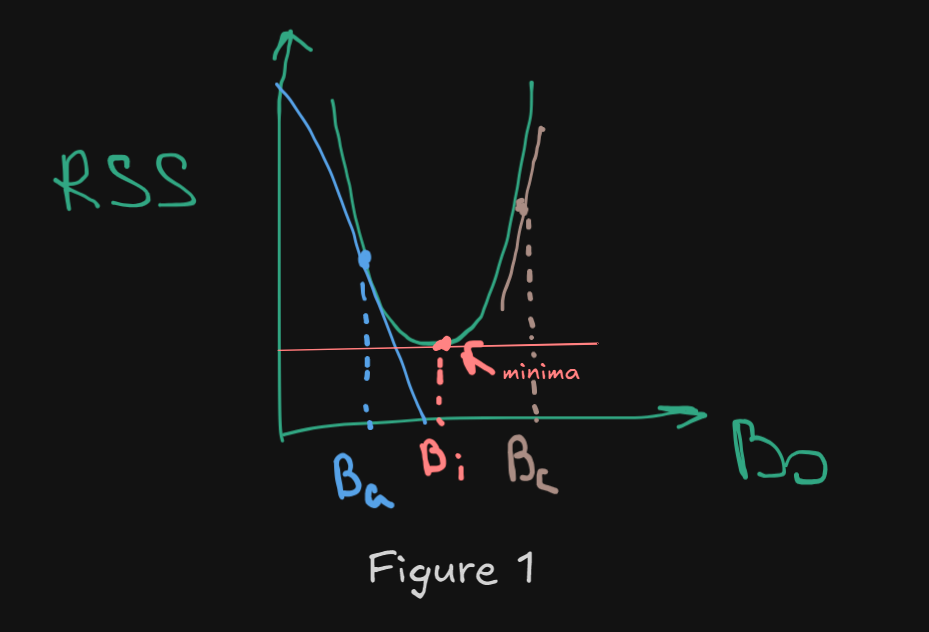 RSS
minima
Ba
Bi
Bc
B0
Figure 1